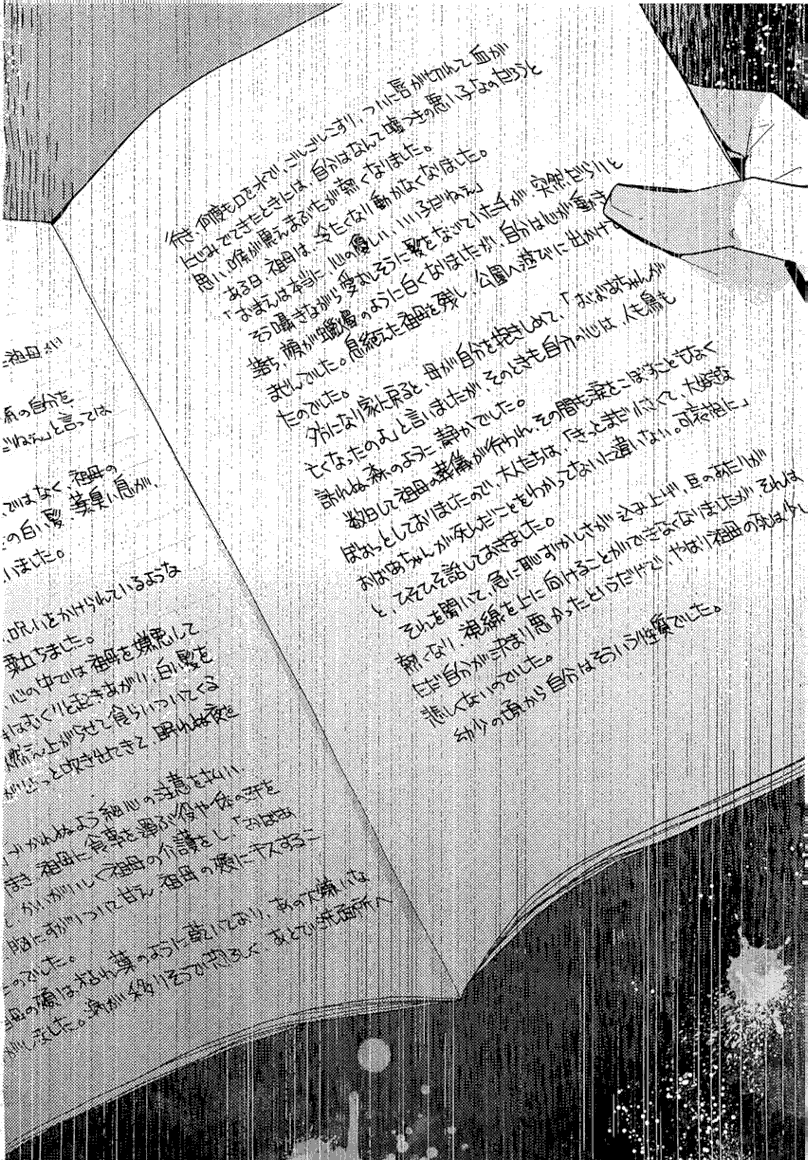 祖母が
の自分を
だねぇ」と言っては
ではなく、祖母の
の白い髪、薬臭い息が、
いました。
呪いをかけられているような
粟立ちました。
心の中では祖母を嫌悪して
はむくりと起きあがり、白い髪を
燃え上がらせて食らいついてくる
がさっと吹きせてきて、眠れぬ夜を
づかれぬよう細心の注意を払い、
祖母に食事を運ぶ役や体の汗を
かいがいしく祖母の介護をし、「おばあ
胸にすがりついて甘え、祖母の頬にキスするこ
たのでした。
母の頬は枯れ葉のように乾いており、あの大嫌いな
がしました。病が移りそうで恐ろしく、あとで洗面所へ
行き、何度も口を水で、ごしごしこすり、ついに唇が切れて血が
にじみでてきたときには、自分はなんて嘘つきの悪い子なのだろうと
思い、喉が震え、まぶたが熱くなりました。
ある日、祖母は、冷たくなり動かなくなりました。
「おまえは本当に、心の優しい、いい子だねぇ」
そう囁きながら愛おしそうに髪をなでていた手が、突然だらりと
落ち、顔が蝋のように白くなりましたが、自分は心が動き
ませんでした。息絶えた祖母を残し、公園へ遊びに出かけ
たのでした。
夕方になり家に戻ると、母が自分を抱きしめて、「おばあちゃんが
亡くなったのよ」と言いましたが、そのときも自分の心は、人も鳥も
訪れぬ森のように静かでした。
数日して祖母の葬儀が行われ、その間も涙をこぼすこともなく
ぼぉっとしておりましたので、大人たちは、「きっとまだ小さくて、大好きな
おばあちゃんが死んだことをわかってないに違いない。可哀想に」
と、ひそひそ話しておきました。
それを聞いて、急に恥ずかしさが込み上げ、耳のあたりが
熱くなり、視線を上に向けることができなくなりましたが、それは
ただ自分が決まり悪かったというだけで、やはり祖母の死は少し
悲しくないのでした。
幼少の頃から自分はそういう性質でした。